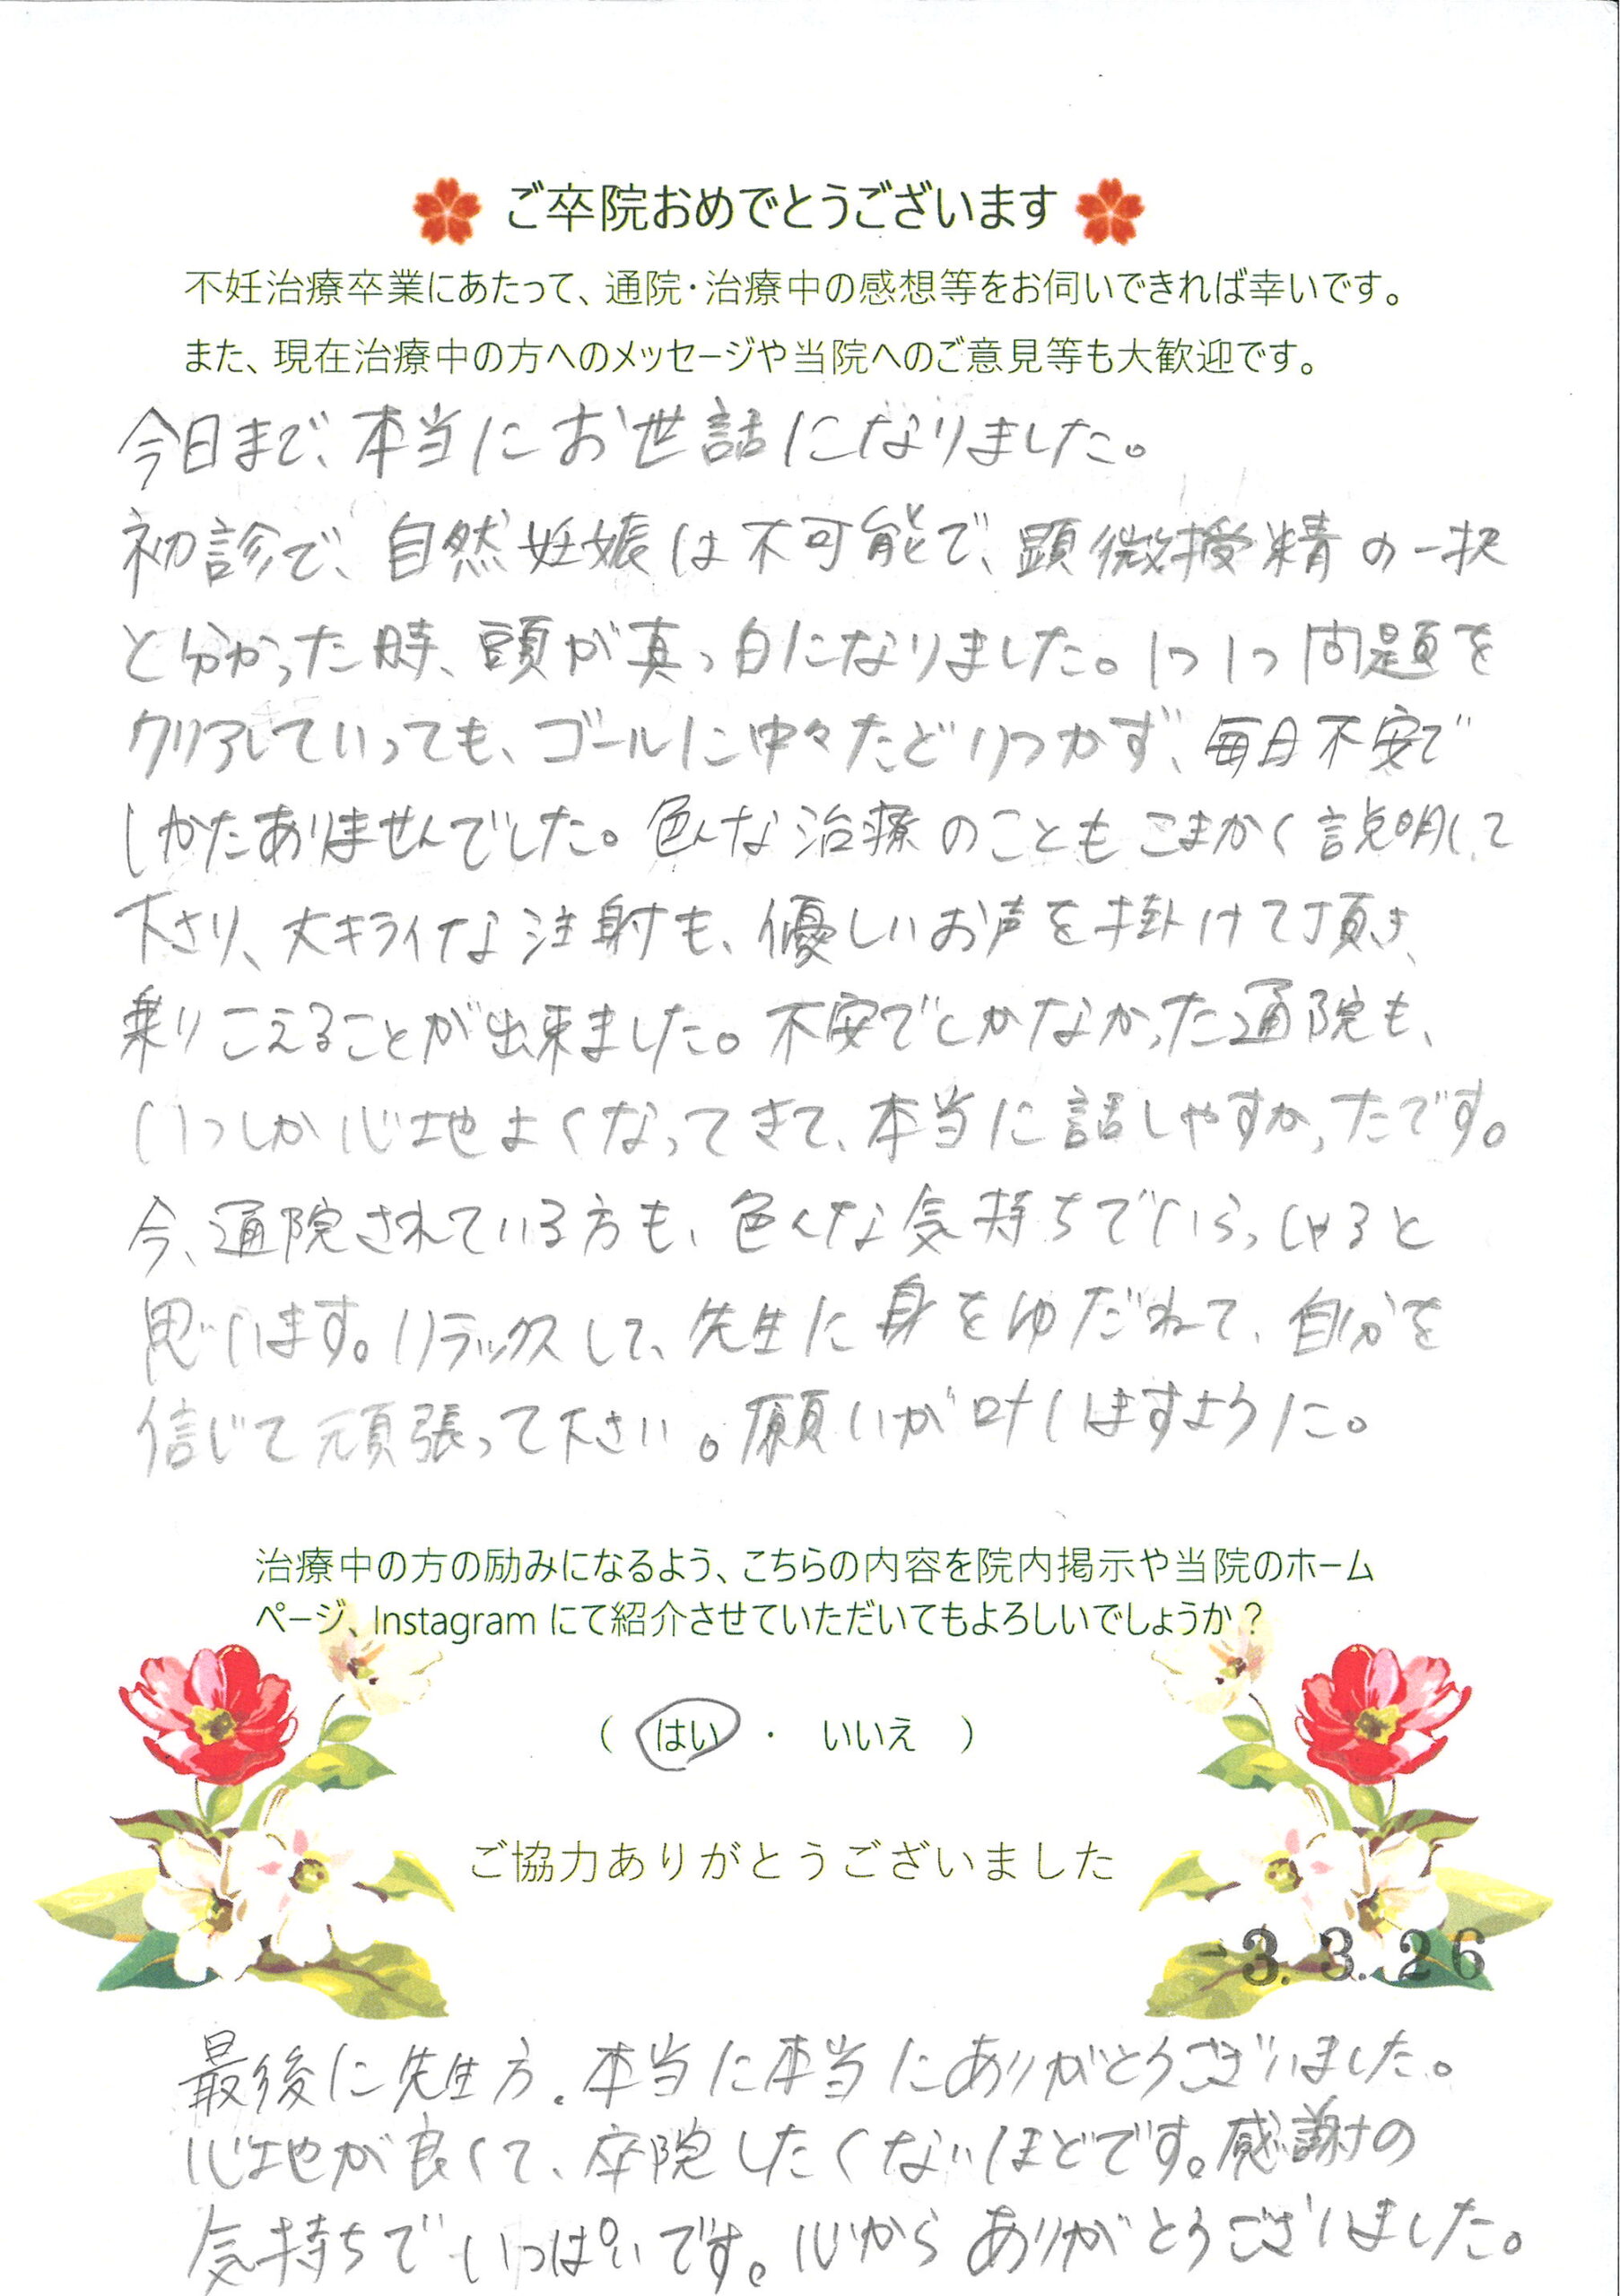 ご卒院おめでとうございます
不妊治療卒業にあたって、通院・治療中の感想等をお伺いできれば幸いです。
また、現在治療中の方へのメッセージや当院へのご意見等も大歓迎です。
今日まで、本当にお世話になりました。
初診で、自然妊娠は不可能で、顕微授精の一択
と分かった時、頭が真っ白になりました。1つ1つ問題を
クリアしていっても、ゴールに中々たどりつかず、毎日不安で
しかたありませんでした。色んな治療のこともこまかく説明して
下さり、大キライな注射も、優しいお声を掛けて頂き、
乗りこえることが出来ました。不安でしかなかった通院も、
いつしか心地よくなってきて、本当に話しやすかったです。
今、通院されている方も、色んな気持ちでいらっしゃると
思います。リラックスして、先生に身をゆだねて、自分を
信じて頑張って下さい。願いが叶いますように。
治療中の方の励みになるよう、こちらの内容を院内掲示や当院のホーム
ページ、Instagram にて紹介させていただいてもよろしいでしょうか？
（ はい ・ いいえ ）
ご協力ありがとうございました
3. 3. 26
最後に先生方、本当に本当にありがとうございました。
心地が良くて、卒院したくないほどです。感謝の
気持ちでいっぱいです。心からありがとうございました。